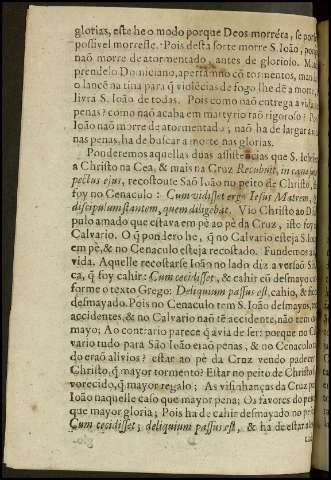 glorias, este he o modo porque Deos morrèra, se
possivel morresse. Pois desta sorte morre S. Ioão,
naõ morre de atormentado, antes de glorioso.
prendelo Domiciano, apertàmno cõ tormentos,
o lance na tina para q̃ violẽcias de fogo lhe dẽ a morte,
livra S. Ioão de todas. Pois como naõ entrega a vida
penas? como naõ acaba em martyrio taõ rigoroso?
Ioão naõ morre de atormentado; naõ ha de largar a
nas penas, ha de buscar a morte nas glorias.
Ponderemos aquellas duas assistẽcias que S.
a Christo na Cea, & mais na Cruz Recubuit, in cæna
pectus ejus, recostouse Saõ Ioão no peito de Christo,
foy no Cenaculo: Cum vidisset ergo Iesus Matrem,
discipulum stantem, quem diligebat. Vio Christo ao
pulo amado que estava em pè ao pè da Cruz, isto foy
Calvario. O q̃ pondero he, q̃ no Calvario esteja S.
em pè, & no Cenaculo esteja recostado. Fundemos
vida. Aquelle recostarse Ioão no lado diz a versaõ
ca, q̃ foy cahir: Cum cecidisset, & cahir cõ desmayo
forme o texto Grego: Deliquium passus est, cahio, &
desmayado. Pois no Cenaculo tem S. Ioão desmayos,
accidentes, & no Calvario naõ tẽ accidente, não tem
mayo; Ao contrario parece q̃ avia de ser: porque no
vario tudo para São Ioão eraõ penas, & no Cenaculo
do eraõ alivios? estar ao pè da Cruz vendo padecer
Christo, q̃ mayor tormento? Estar no peito de Christo
vorecido, q̃ mayor regalo; As visinhanças da Cruz
Ioão naquelle caso que mayor pena; Os favores do
que mayor gloria; Pois ha de cahir desmayado no
Cum cecidisset; deliquium passus est, & ha de estar